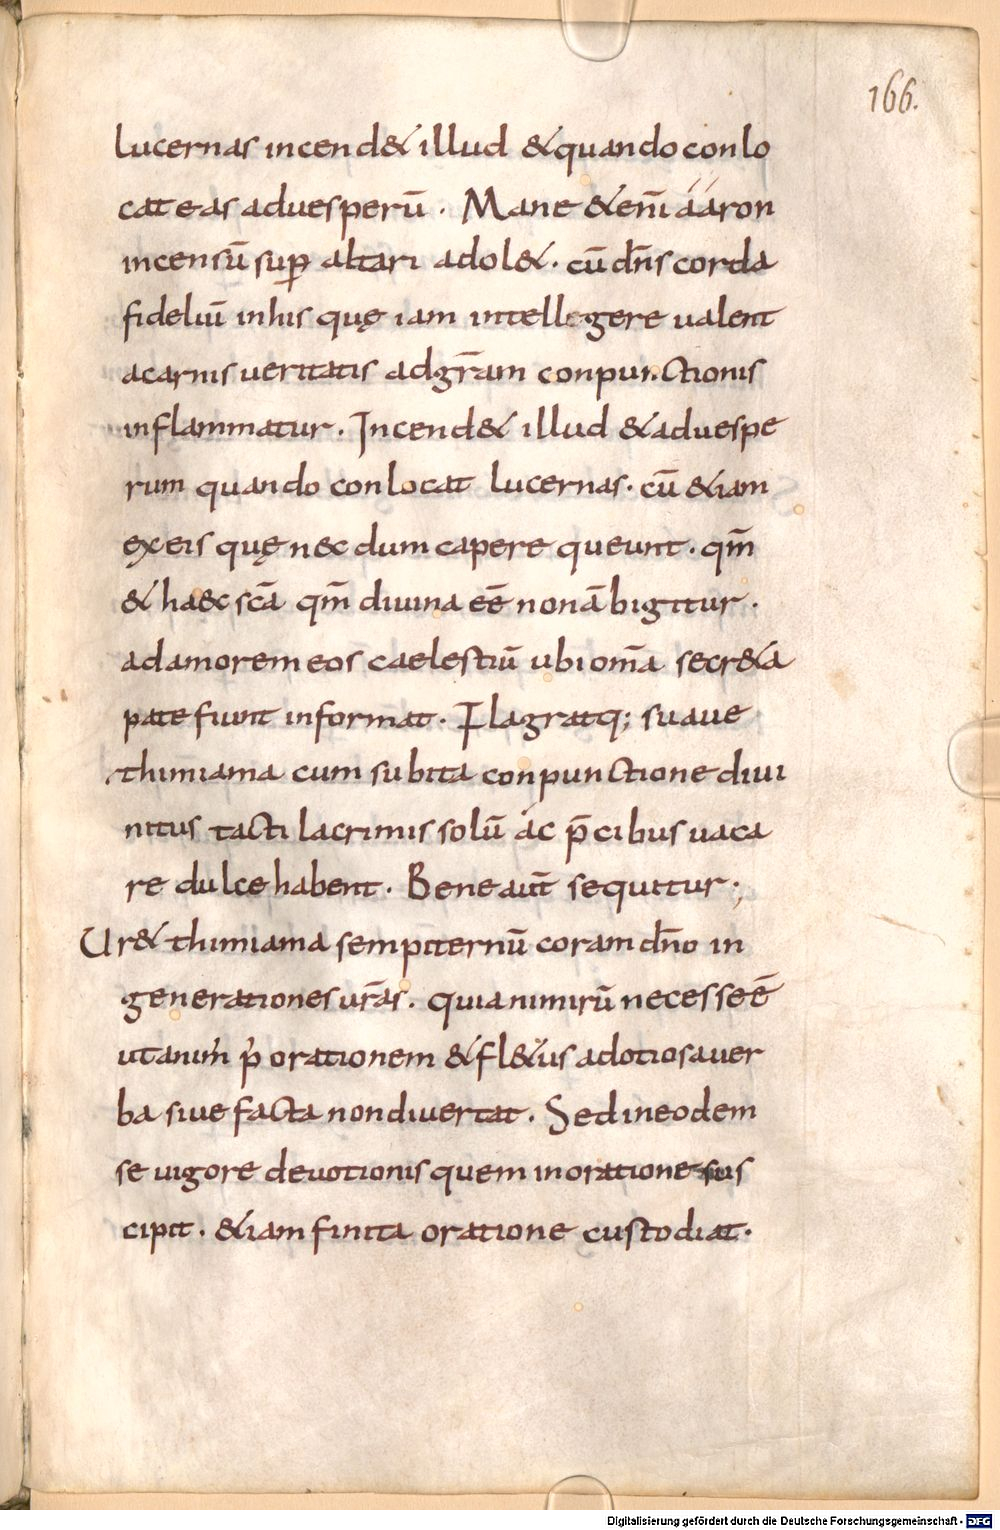 166.
lucernas incend& illud & quando conlo
cat eas aduesperū . Mane & enī ááron
incensū sup altari adol& . cū dn̄s corda
fideliū inhis quę iam intellegere ualent
acarnis ueritatis adgr̄am conpunctionis
inflammatur . Incend& illud & aduespe
rum quando conlocat lucernas . cū &iam
exeis quę necdum capere queunt . qm̄
& haec scā qm̄ diuina eē nonābigitur .
adamorem eos caelestiū ubi om̄a secr&a
patefiunt informat . Flagratq; suaue
thimiama cum subita conpunctione diui
nitus tacti lacrimis solū ác p̄cibus uaca
re dulce habent . Bene aūt sequitur ;
Ur& thimiama sempiternū coram dn̄o in
generationes ur̄as . quia nimirū necesse ē
utanim̄ p̄ orationem & fl&us adotiosa uer
ba siue facta non diuertat . Sed ineodem
se uigore deuotionis quem inoratione sus
cipit . &iam finita oratione custodiat .
Digitalisierung gefördert durch die Deutsche Forschungsgemeinschaft - DFG